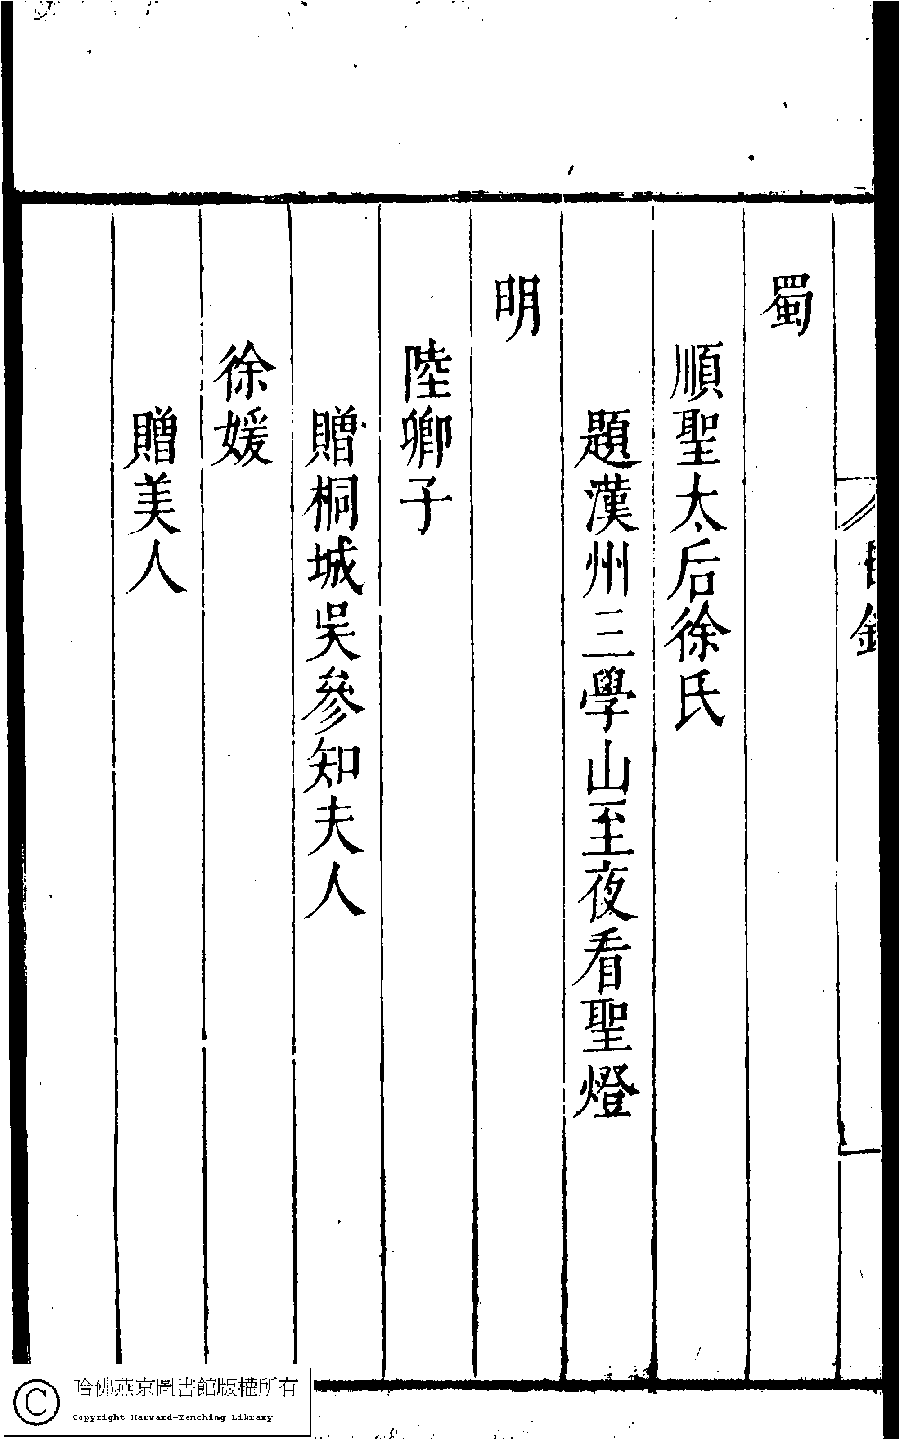 目錄
蜀
順聖太后徐氏
題漢州三學山至夜看聖燈
明
陸卿子
贈桐城吳參知夫人
徐媛
贈美人
哈佛燕京圖書館版權所有
Copyright Harvard-Yenching Library